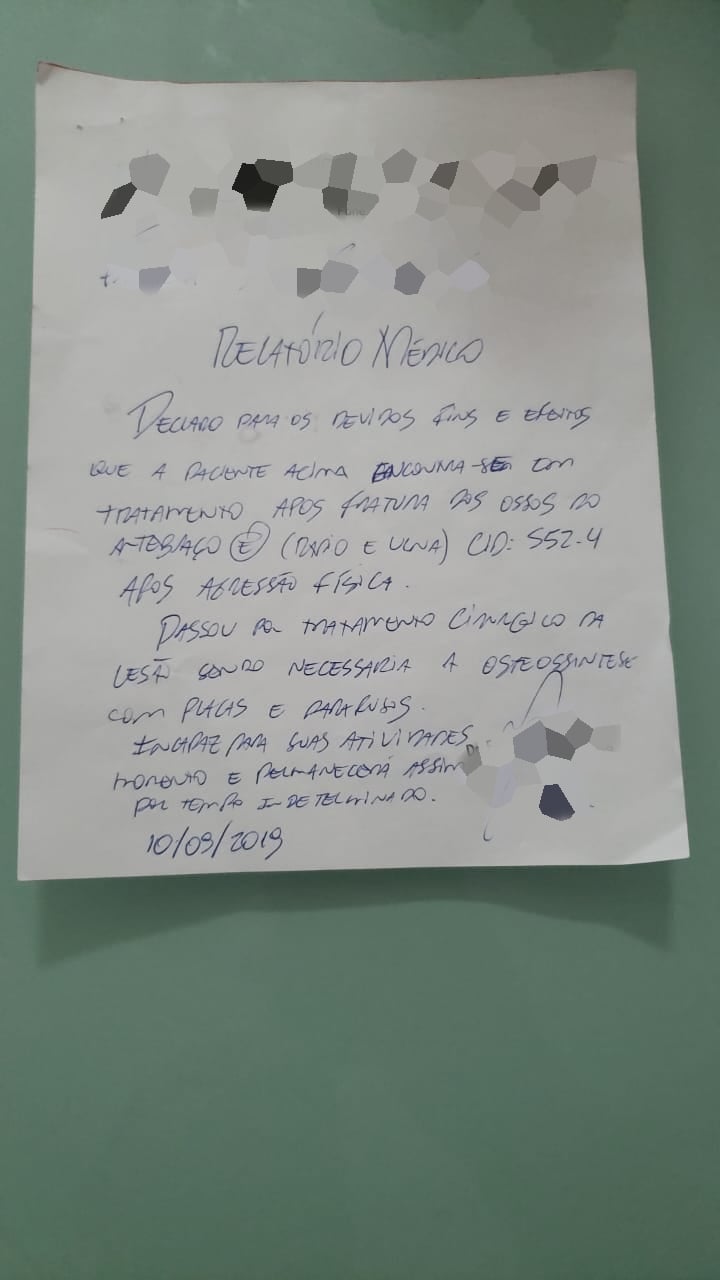 RELATÓRIO MÉDICO
DECLARO PARA OS DEVIDOS FINS E EFEITOS
QUE A PACIENTE ACIMA ENCONTRA-SE EM
TRATAMENTO APOS FRATURA DOS OSSOS DO
ANTEBRAÇO (E) (RADIO E ULNA) CID: S52.4
APOS AGRESSÃO FÍSICA.
PASSOU POR TRATAMENTO CIRURGICO DA
LESÃO SENDO NECESSARIA A OSTEOSSINTESE
COM PLACAS E PARAFUSOS.
INCAPAZ PARA SUAS ATIVIDADES
MOMENTO E PERMANECERÁ ASSIM
POR TEMPO INDETERMINADO.
10/09/2019